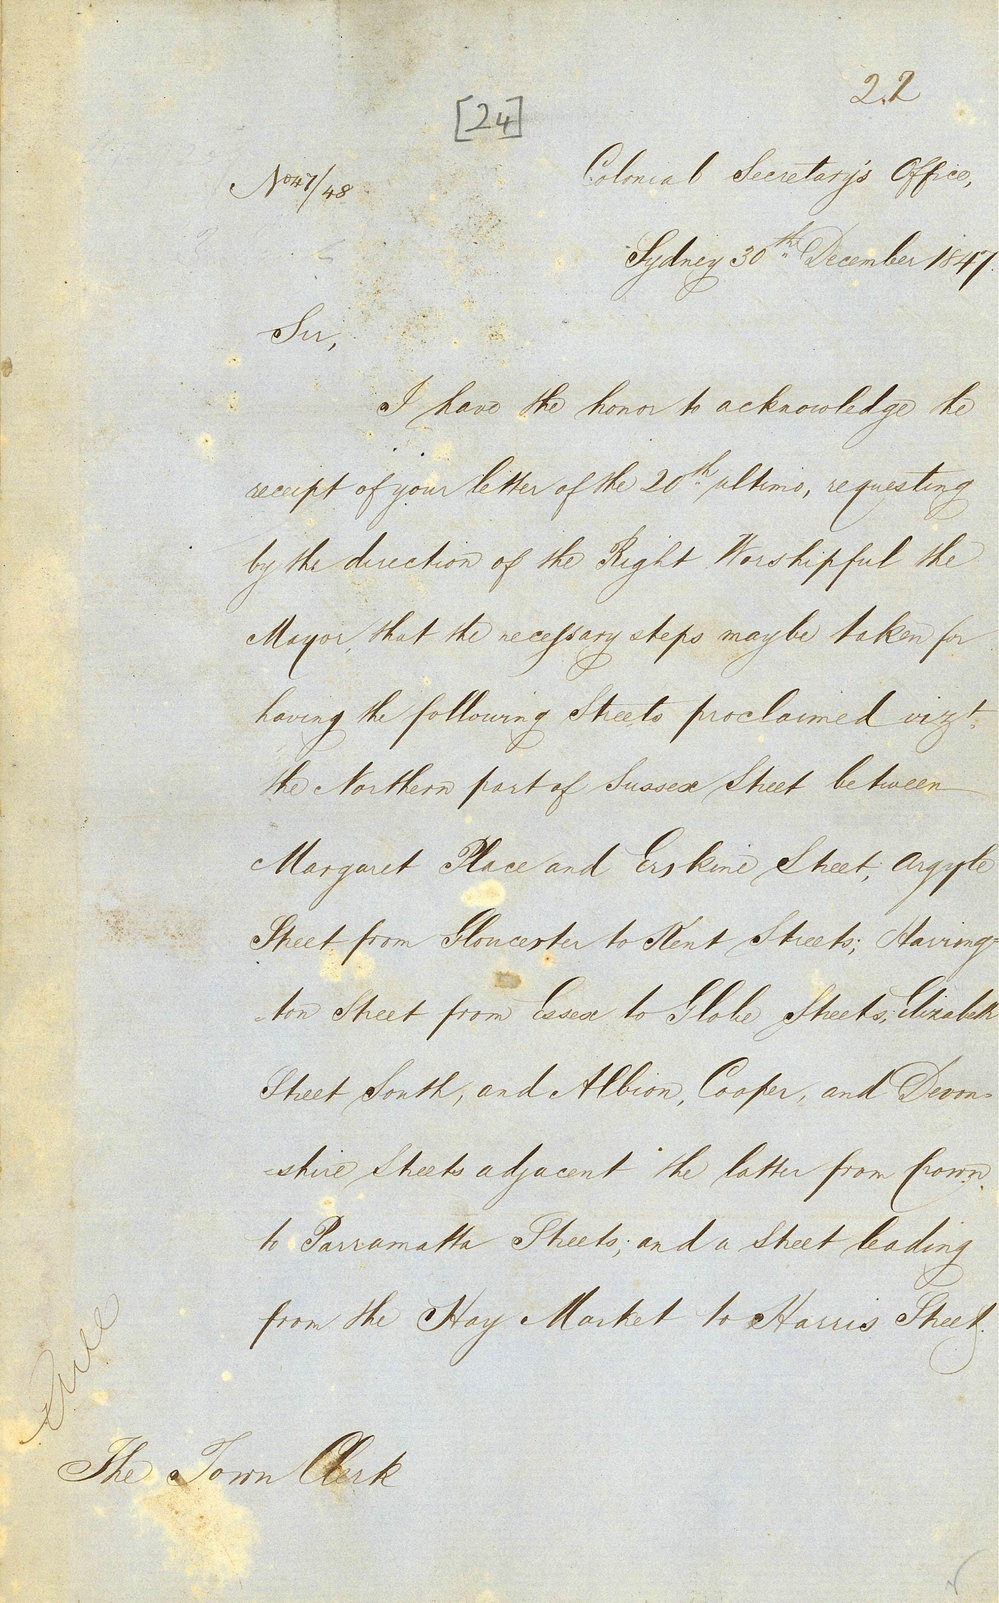 22
[24]
No 47/48
Colonial Secretary's Office,
Sydney 30th December 1847.
Sir,
I have the honor to acknowledge the
receipt of your letter of the 20th ultimo, requesting
by the direction of the Right Worshipful the
Mayor, that the necessary steps may be taken for
having the following Streets proclaimed vizt.
the Northern part of Sussex Street between
Margaret Place and Erskine Street, Argyle
Street from Gloucester to Kent Streets; Harring=
ton Street from Essex to Globe Streets; Elizabeth
Street South, and Albion, Cooper, and Devon=
=shire Streets adjacent the latter from Crown
to Parramatta Streets; and a Street leading
from the Hay Market to Harris Street.
The Town Clerk